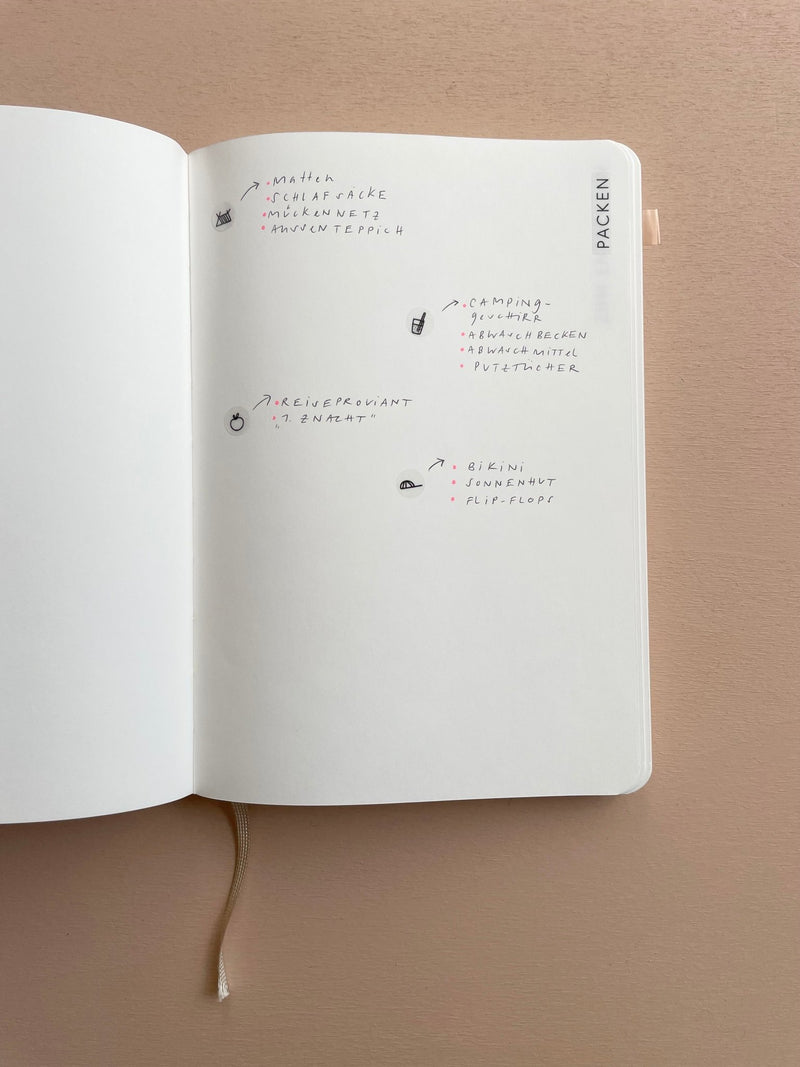 PACKEN
• Matten
• SCHLAFSÄCKE
• MÜCKENNETZ
• AUSSENTEPPICH
• CAMPING-
geschirr
• ABWASCHBECKEN
• ABWASCHMITTEL
• PUTZTÜCHER
• REISEPROVIANT
• "1. ZNACHT"
• BIKINI
• SONNENHUT
• FLIP-FLOPS